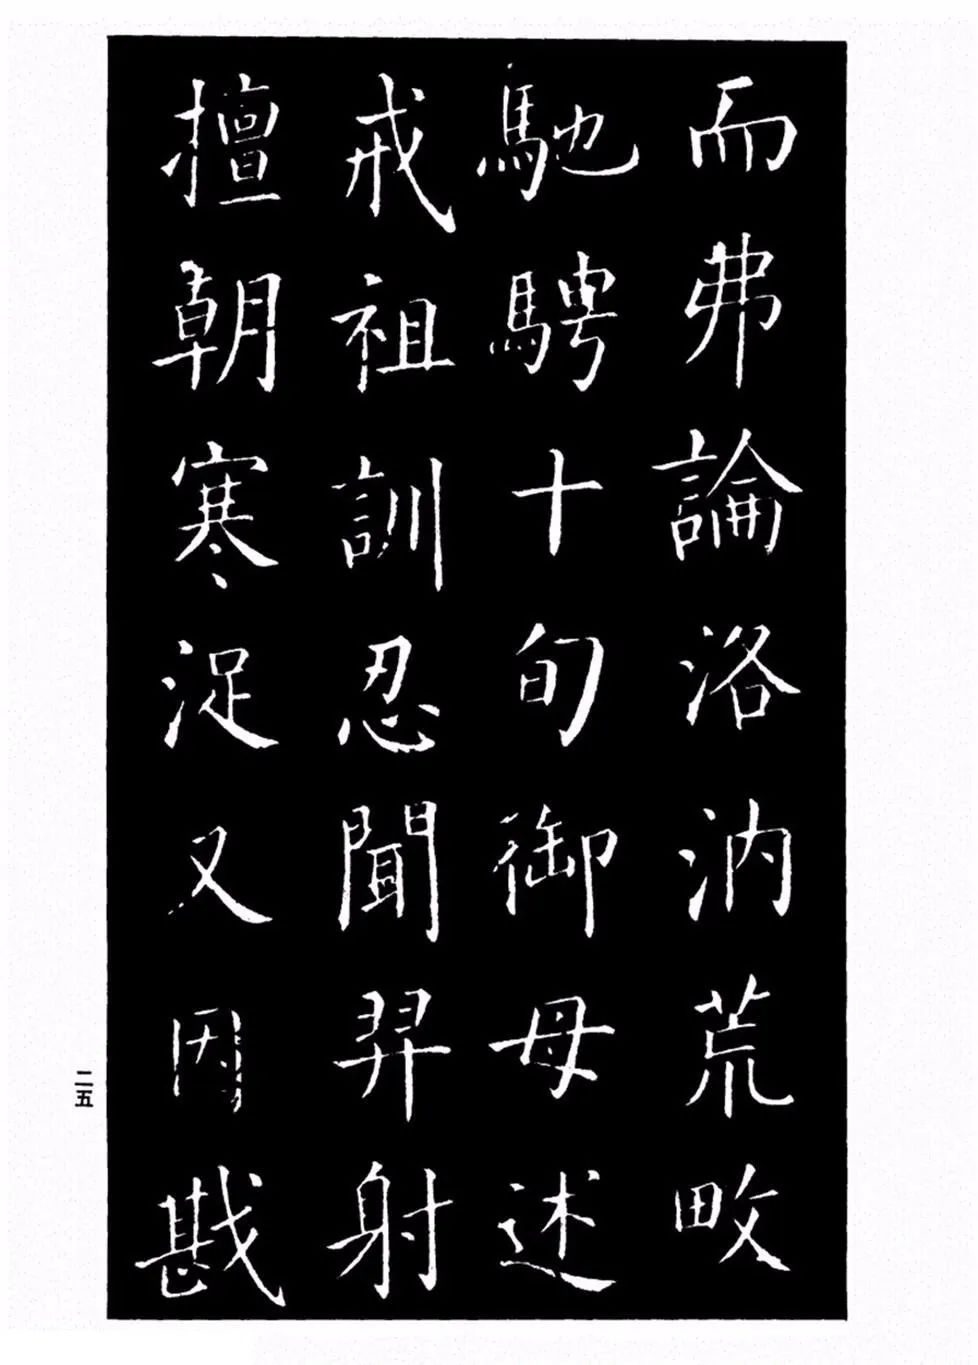 而弗論洛汭荒畋
馳騁十旬御母述
戒祖訓忍聞羿射
擅朝寒浞又因戡
二五